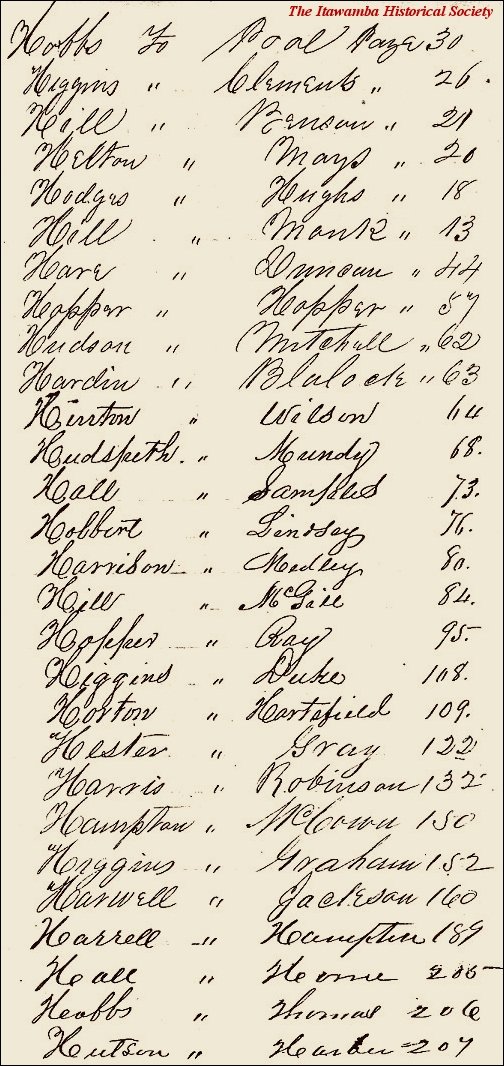 The Itawamba Historical Society
Hobbs To Poal Page 30
Higgins " Clements " 26
Hill " Benson " 21
Helton " Mays " 20
Hodges " Hughs " 18
Hill " Monk " 13
Hare " Duncan " 44
Hopper " Hopper " 57
Hudson " Mitchell " 62
Hardin " Blalock " 63
Hinton " Wilson 64
Hudspeth. " Mundy 68.
Hall " Samples 73.
Hobbert " Lindsey 76.
Harrison " Medley 80.
Hill " McGill 84.
Hopper " Ray 95.
Higgins " Duke 108.
Horton " Hartsfield 109.
"Hester " Gray 122
"Harris " Robinson 132
Hampton " McCown 150
"Higgins " Graham 152
"Harwell " Jackson 160
Harrell " Hampton 189
Hall " Horne 205
Hobbs " Thomas 206
Hutson " 207